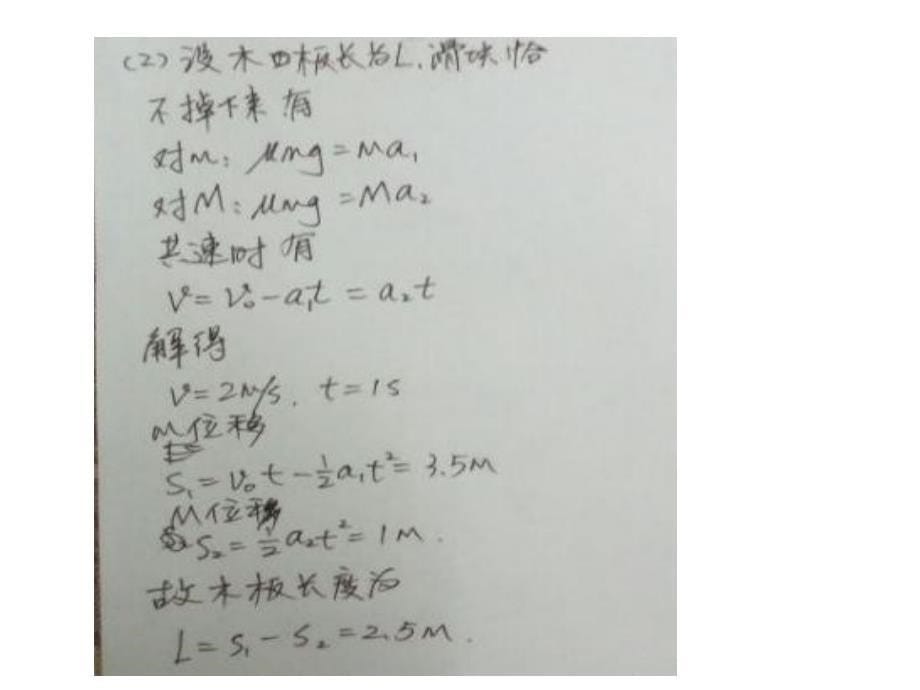 (2) 设木板长为L,滑块恰
不掉下来有
对m: μmg=ma₁
对M: μmg=Ma₂
共速时有
v=v₀-a₁t=a₂t
解得
v=2m/s. t=1s
m位移
S₁=v₀t-½a₁t²=3.5m
M位移
S₂=½a₂t²=1m.
故木板长度为
L=S₁-S₂=2.5m.